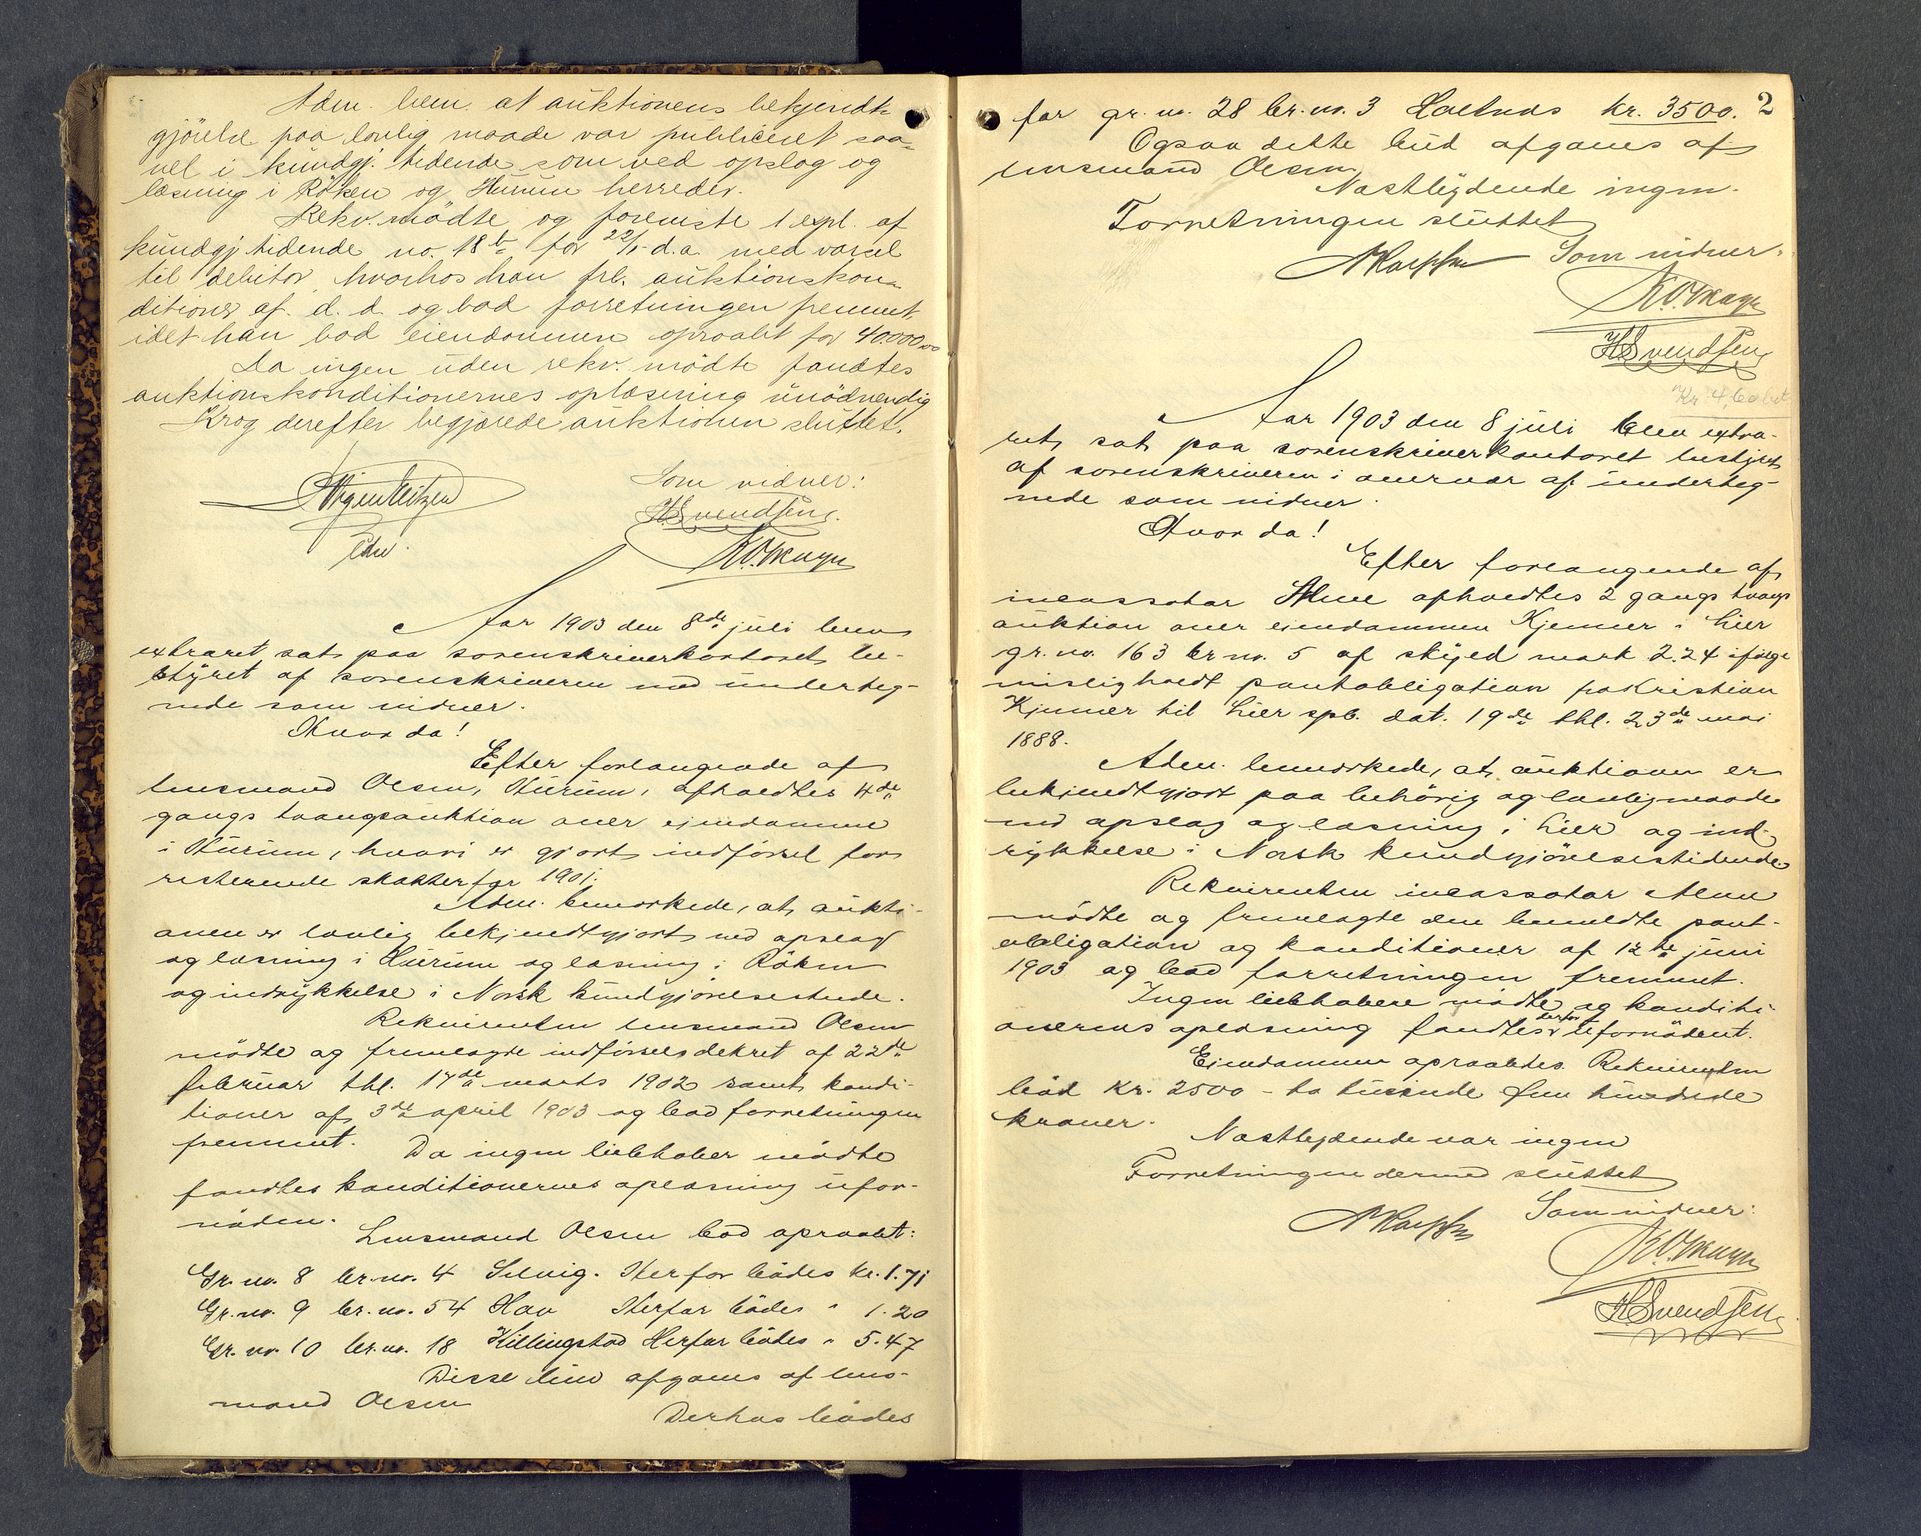 Adm. bem. at auktionens bekjendt-
gjörelse paa lovlig maade var publiceret saa-
vel i kundgj. tidende som ved opslag og
læsning i Röken og Hurum herreder.
Rekv. mödte og foreviste 1 expl. af
kundgj. tidende no. 18 b for 22/1 d.a. med varsel
til debitor, hvorhos han frl. auktionskon-
ditioner af d. d. og bad forretningen fremmet
idet han bad eiendommen opraabt for 40.000,00
Da ingen uden rekv. mödte fandtes
auktionskonditionernes oplæsning unödvendig
Krog derefter begjærede auktionen sluttet.
Som vidner:
HSvendsen
Edv.
Aar 1903 den 8de juli blev
extraret sat paa sorenskriverkontoret be-
styret af sorenskriveren med underteg-
nede som vidner.
Hvor da!
Efter forlangende af
lensmand Olsen, Hurum, afholdtes 4de
gangs tvangsauktion over eiendomme
i Hurum, hvori er gjort indförsel for
resterende skatter for 1901.
Adm. bemerkede, at aukti-
onen er lovlig bekjendtgjort ved opslag
og læsning i Hurum og læsning i Röken
og indrykkelse i Norsk kundgjörelsestidende.
Rekvirenten lensmand Olsen
mödte og fremlagde indförselsdekret af 22de
februar thl. 17de marts 1902 samt kondi-
tioner af 3de april 1903 og bad forretningen
fremmet.
Da ingen liebhaber mödte
fandtes konditionernes oplæsning ufor-
nöden.
Lensmand Olsen bad opraabt:
Gr. no. 8 br. no. 4 Selvig. Herfor bödes kr. 1.71
Gr. no. 9 br. no. 54 Hav Herfor bödes " 1.20
Gr. no. 10 br. no. 18 Killingstad Herfor bödes " 5.47
Disse bud afgaves af lens-
mand Olsen
Derhos bödes
2
for gr. no. 28 br. no. 3 Holtnæs kr. 3500.
Ogsaa dette bud afgaves af
lensmand Olsen.
Næstbydende ingen.
Forretningen sluttet
Som vidner:
HSvendsen
Kr 4,
Aar 1903 den 8 juli blev extra-
ret sat paa sorenskriverkontoret bestyret
af sorenskriveren i overvær af underteg-
nede som vidner.
Hvor da!
Efter forlangende af
incassator afholdtes 2 gangs tvangs
auktion over eiendommen Kjenner i Lier
gr. no. 163 br no. 5 af skyld mark 2.24 ifölge
misligholdt pantobligation fra Kristian
Kjenner til Lier spb. dat. 19de thl. 23de mai
1888.
Adm. bemerkede, at auktionen er
bekjendtgjort paa behörig og lovlig maade
ved opslag og læsning i Lier og ind-
rykkelse i Norsk kundgjörelsestidende.
Rekvirenten incassator
mödte og fremlagte den bemeldte pant-
obligation og konditioner af 12te juni
1903 og bad forretningen fremmet.
Ingen liebhabere mödte og konditi-
onernes oplæsning fandtes derfor ufornödent.
Eiendommen opraabtes. Rekvirenten
böd kr. 2500 - to tusinde fem hundrede
kroner.
Næstbydende var ingen
Forretningen dermed sluttet
Som vidner:
HSvendsen